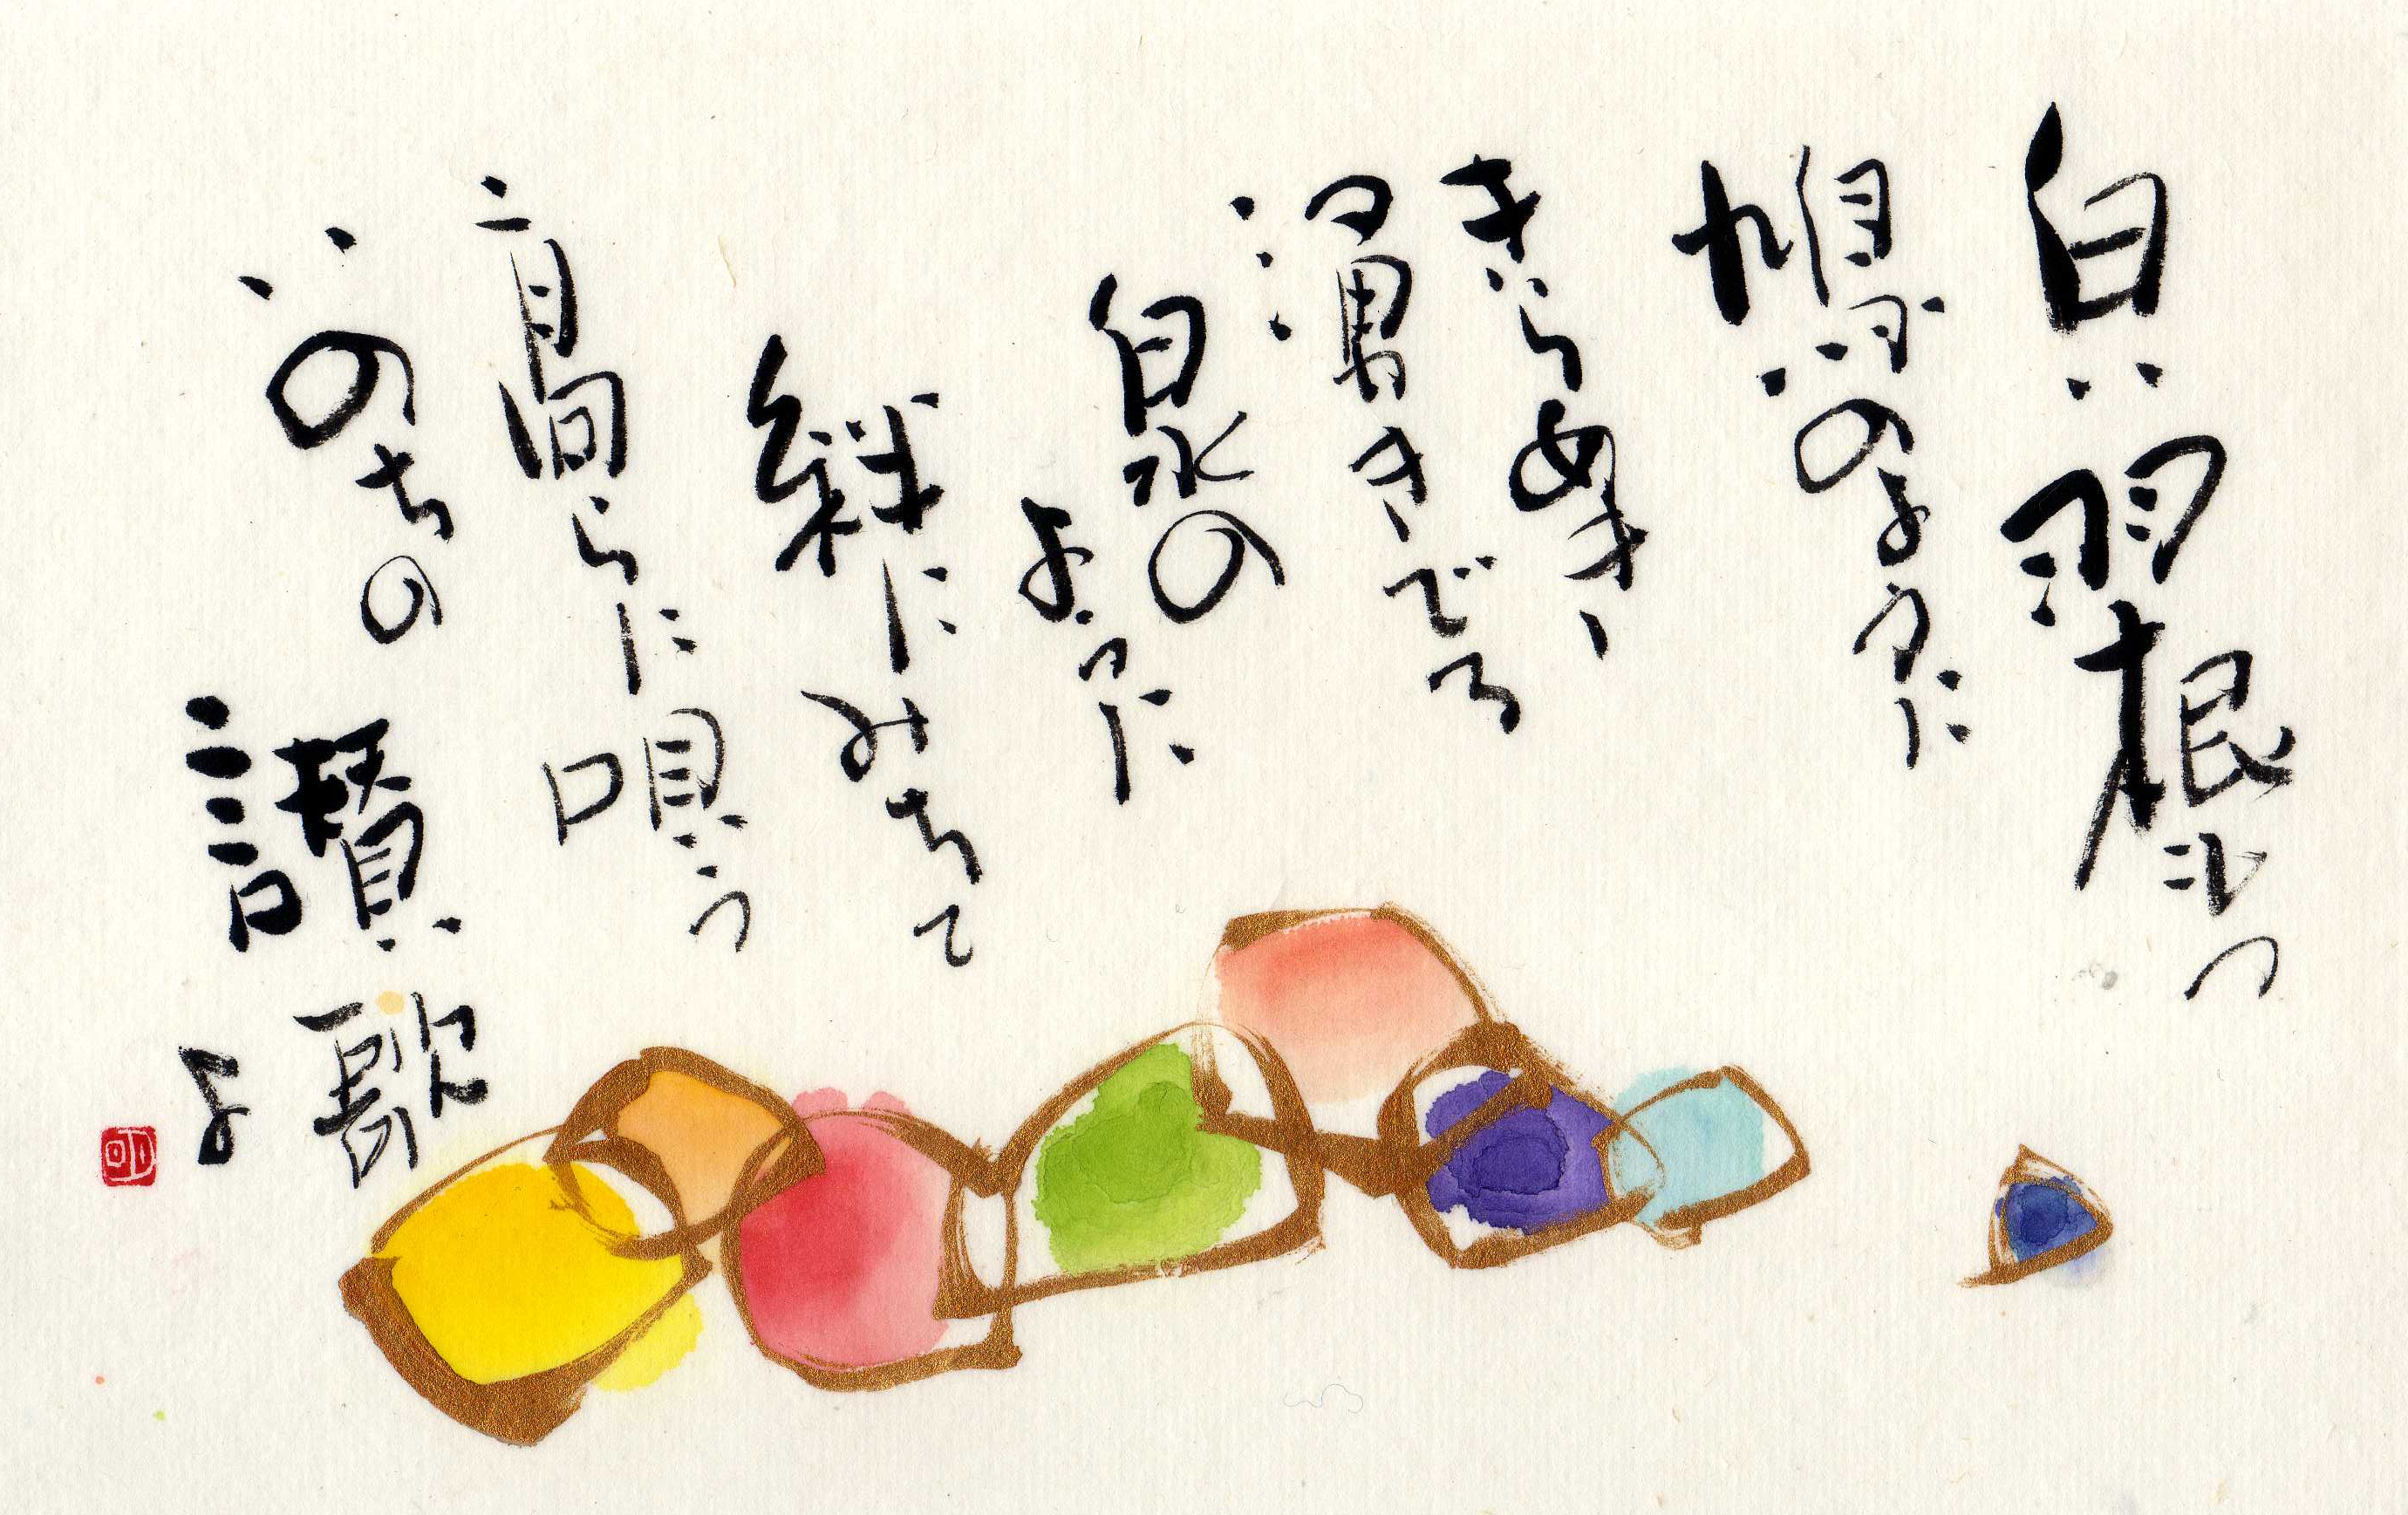 白い羽根もつ
鳩のように
きらめき
湧きでる
泉の
ように
絆にみちて
高らに唄う
いのちの讃歌
よ